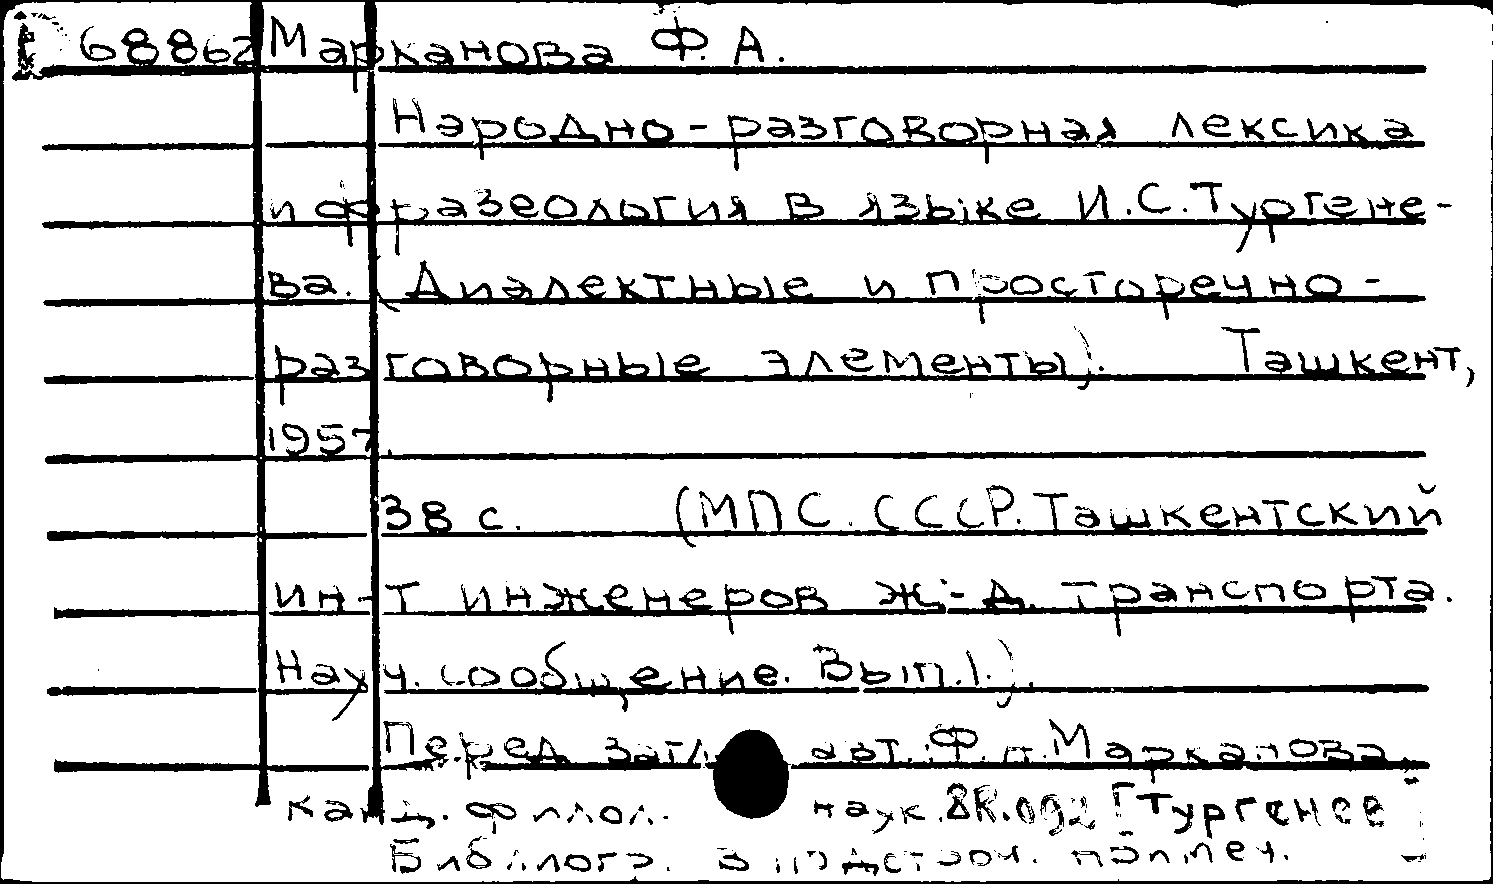 68862 Марканова Ф. А.
Народно-разговорная лексика
и фразеология в языке И.С.Тургене-
ва. (Диалектные и просторечно-
разговорные элементы). Ташкент,
1957.
38 с. (МПС. СССР. Ташкентский
ин-т инженеров ж.-д. транспорта.
Науч. сообщение. Вып.1.).
Перед загл. авт.: Ф.А. Марканова,
канд. филол. наук. 8R.092 [Тургенев]
Библиогр. в подстроч. примеч.